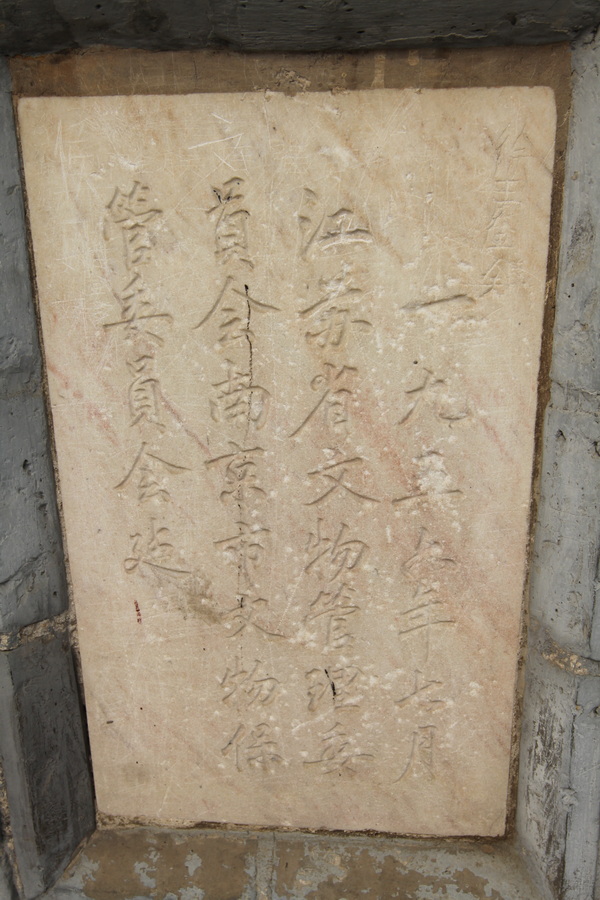 一九五六年七月
江苏省文物管理委
員会南京市文物保
管委員会建